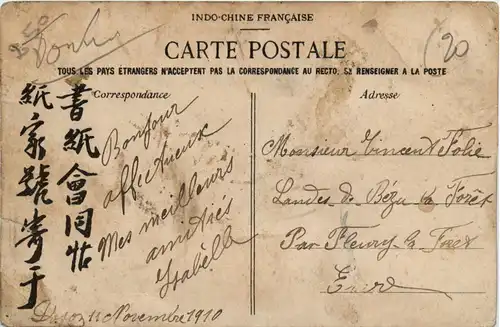 INDO-CHINE FRANÇAISE
CARTE POSTALE
TOUS LES PAYS ÉTRANGERS N'ACCEPTENT PAS LA CORRESPONDANCE AU RECTO, SE RENSEIGNER A LA POSTE
Correspondance
Adresse
20
書紙會同帖
紙家號寄于
Bonjour
affectueux
Mes meilleurs
amitiés
Isabelle
11 Novembre 1910
Monsieur Vincent Folie
Landes de Bézu la Forêt
Par Fleury la Foret
Eure